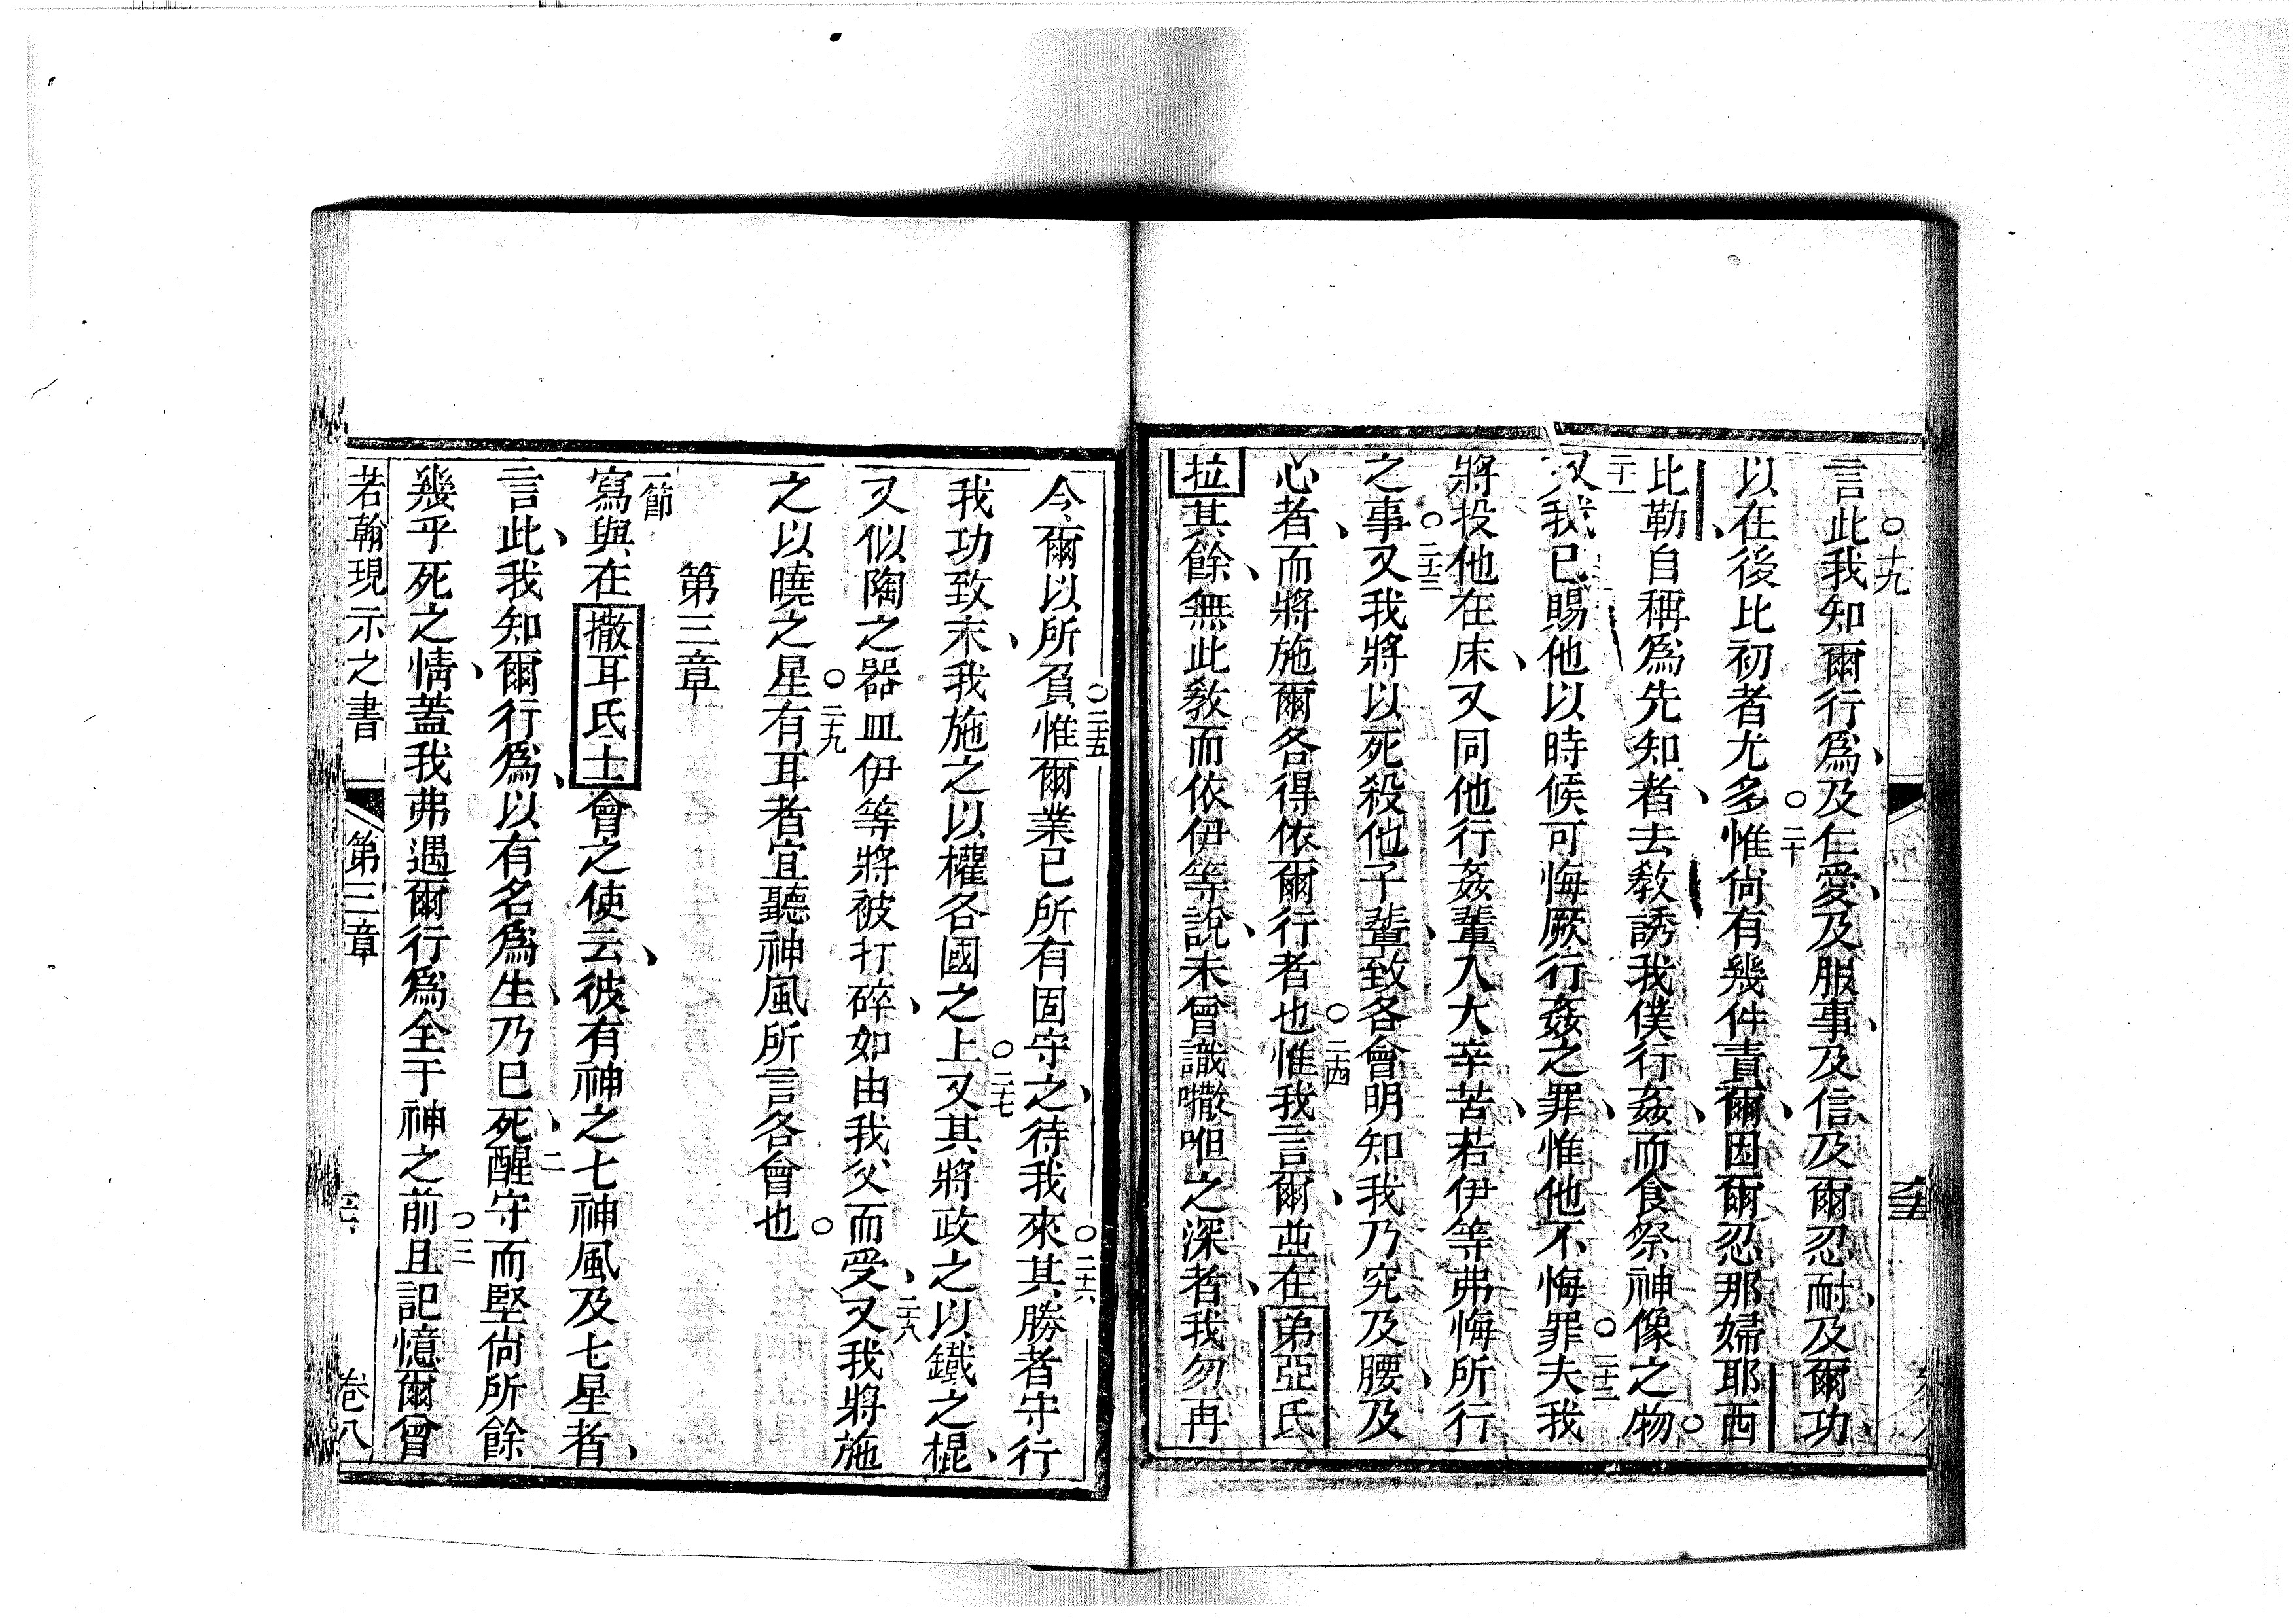 ○十九
言此我知爾行爲、及仁愛、及服事、及信及爾忍耐、及爾功
以在後比初者尤多○二十惟尙有幾件責爾因爾忍那婦耶西
比勒自稱爲先知者、去敎誘我僕行姦、而食祭神像之物○
二十一
又我已賜他以時候可悔厥行姦之罪、惟他不悔罪○二十二夫我
將投他在床、又同他行姦輩入大辛苦、若伊等弗悔所行
之事○二十三又我將以死殺他子輩、致各會明知我乃究及腰、及
心者、而將施爾各得依爾行者也○二十四惟我言爾、並在弟亞氏
拉其餘、無此敎而依伊等說、未曾識㘔呾之深者、我勿再
今爾以所負○二十五惟爾業已所有固守之、待我來○二十六其勝者守行
我功致末、我施之以權各國之上○二十七又其將政之以鐵之棍、
又似陶之器皿伊等將被打碎、如由我父而受、二十八又我將施
之以曉之星○二十九有耳者宜聽神風所言各會也○
第三章
一節
寫與在撒耳氏士會之使云、彼有神之七神風及七星者、
言此、我知爾行爲、以有名爲生、乃已死、二醒守而堅尙所餘
幾乎死之情、蓋我弗遇爾行爲全于神之前○三且記憶爾曾
若翰現示之書
第三章
卷八